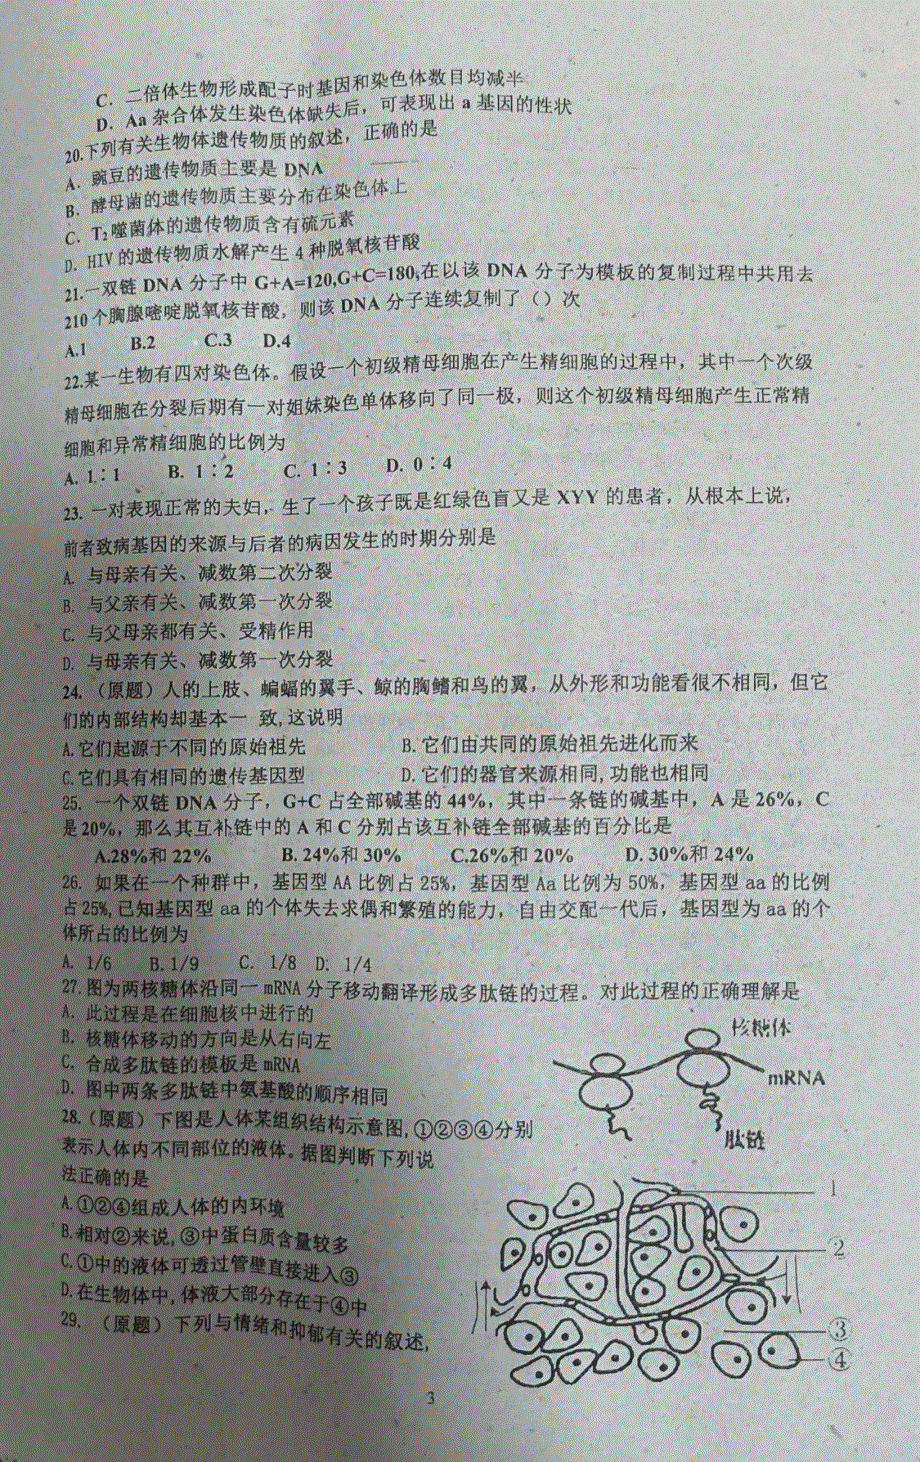 C. 二倍体生物形成配子时基因和染色体数目均减半
D. Aa 杂合体发生染色体缺失后，可表现出 a 基因的性状
20.下列有关生物体遗传物质的叙述，正确的是
A. 豌豆的遗传物质主要是 DNA
B. 酵母菌的遗传物质主要分布在染色体上
C. T₂噬菌体的遗传物质含有硫元素
D. HIV 的遗传物质水解产生 4 种脱氧核苷酸
21.一双链 DNA 分子中 G+A=120,G+C=180,在以该 DNA 分子为模板的复制过程中共用去
210 个胸腺嘧啶脱氧核苷酸，则该 DNA 分子连续复制了（）次
A.1 B.2 C.3 D.4
22.某一生物有四对染色体。假设一个初级精母细胞在产生精细胞的过程中，其中一个次级
精母细胞在分裂后期有一对姐妹染色单体移向了同一极，则这个初级精母细胞产生正常精
细胞和异常精细胞的比例为
A. 1∶1 B. 1∶2 C. 1∶3 D. 0∶4
23. 一对表现正常的夫妇，生了一个孩子既是红绿色盲又是 XYY 的患者，从根本上说，
前者致病基因的来源与后者的病因发生的时期分别是
A. 与母亲有关、减数第二次分裂
B. 与父亲有关、减数第一次分裂
C. 与父母亲都有关、受精作用
D. 与母亲有关、减数第一次分裂
24.（原题）人的上肢、蝙蝠的翼手、鲸的胸鳍和鸟的翼，从外形和功能看很不相同，但它
们的内部结构却基本一 致,这说明
A.它们起源于不同的原始祖先 B.它们由共同的原始祖先进化而来
C.它们具有相同的遗传基因型 D.它们的器官来源相同,功能也相同
25. 一个双链 DNA 分子，G+C 占全部碱基的 44%，其中一条链的碱基中，A 是 26%，C
是20%，那么其互补链中的 A 和 C 分别占该互补链全部碱基的百分比是
A.28%和 22% B. 24%和 30% C.26%和 20% D. 30%和 24%
26. 如果在一个种群中，基因型 AA 比例占 25%，基因型 Aa 比例为 50%，基因型 aa 的比例
占 25%,已知基因型 aa 的个体失去求偶和繁殖的能力，自由交配一代后，基因型为 aa 的个
体所占的比例为
A. 1/6 B. 1/9 C. 1/8 D. 1/4
27.图为两核糖体沿同一 mRNA 分子移动翻译形成多肽链的过程。对此过程的正确理解是
A. 此过程是在细胞核中进行的
B. 核糖体移动的方向是从右向左
C. 合成多肽链的模板是 mRNA
D. 图中两条多肽链中氨基酸的顺序相同
核糖体
mRNA
肽链
28.（原题）下图是人体某组织结构示意图,①②③④分别
表示人体内不同部位的液体。据图判断下列说
法正确的是
A.①②④组成人体的内环境
B.相对②来说,③中蛋白质含量较多
C.①中的液体可透过管壁直接进入③
D.在生物体中,体液大部分存在于④中
1
②
③
④
29. （原题）下列与情绪和抑郁有关的叙述,
3